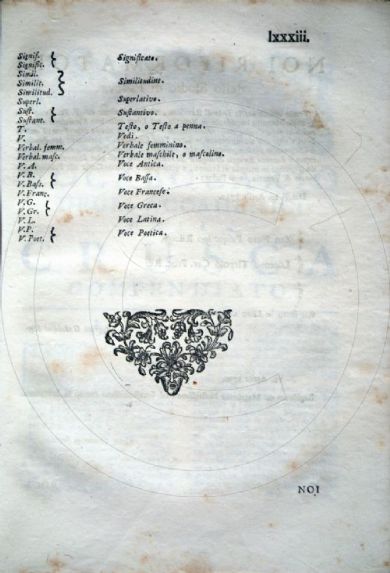 lxxxiii.
Signif. } Significato.
Signific.
Simil. } Similitudine.
Similit.
Similitud.
Superl. Superlativo.
Sust. } Sustantivo.
Sustant.
T. Testo, o Testo a penna.
V. Vedi.
Verbal. femm. Verbale femminino.
Verbal. masc. Verbale maschile, o mascolino.
V. A. Voce Antica.
V. B. } Voce Bassa.
V. Bass.
V. Franc. Voce Francese.
V. G. } Voce Greca.
V. Gr.
V. L. Voce Latina.
V. P. } Voce Poetica.
V. Poet.
NOI